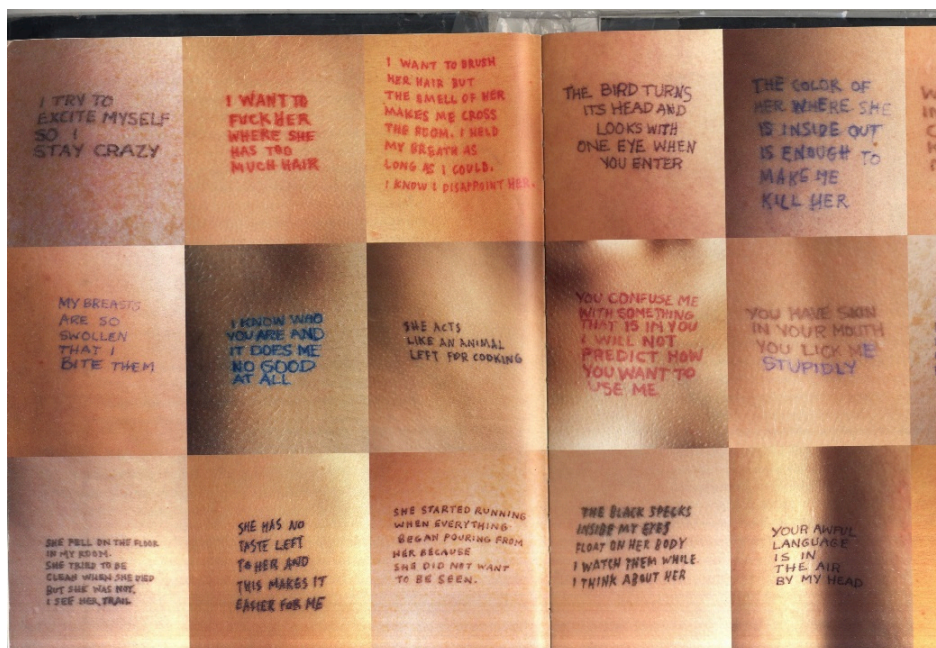 I TRY TO
EXCITE MYSELF
SO I
STAY CRAZY
I WANT TO
FUCK HER
WHERE SHE
HAS TOO
MUCH HAIR
I WANT TO BRUSH
HER HAIR BUT
THE SMELL OF HER
MAKES ME CROSS
THE ROOM. I HELD
MY BREATH AS
LONG AS I COULD.
I KNOW I DISAPPOINT HER.
THE BIRD TURNS
ITS HEAD AND
LOOKS WITH
ONE EYE WHEN
YOU ENTER
THE COLOR OF
HER WHERE SHE
IS INSIDE OUT
IS ENOUGH TO
MAKE ME
KILL HER
MY BREASTS
ARE SO
SWOLLEN
THAT I
BITE THEM
I KNOW WHO
YOU ARE AND
IT DOES ME
NO GOOD
AT ALL
SHE ACTS
LIKE AN ANIMAL
LEFT FOR COOKING
YOU CONFUSE ME
WITH SOMETHING
THAT IS IN YOU
I WILL NOT
PREDICT HOW
YOU WANT TO
USE ME
YOU HAVE SKIN
IN YOUR MOUTH
YOU LICK ME
STUPIDLY
SHE FELL ON THE FLOOR
IN MY ROOM.
SHE TRIED TO BE
CLEAN WHEN SHE DIED
BUT SHE WAS NOT.
I SEE HER TRAIL
SHE HAS NO
TASTE LEFT
TO HER AND
THIS MAKES IT
EASIER FOR ME
SHE STARTED RUNNING
WHEN EVERYTHING
BEGAN POURING FROM
HER BECAUSE
SHE DID NOT WANT
TO BE SEEN.
THE BLACK SPECKS
INSIDE MY EYES
FLOAT ON HER BODY
I WATCH THEM WHILE
I THINK ABOUT HER
YOUR AWFUL
LANGUAGE
IS IN
THE AIR
BY MY HEAD